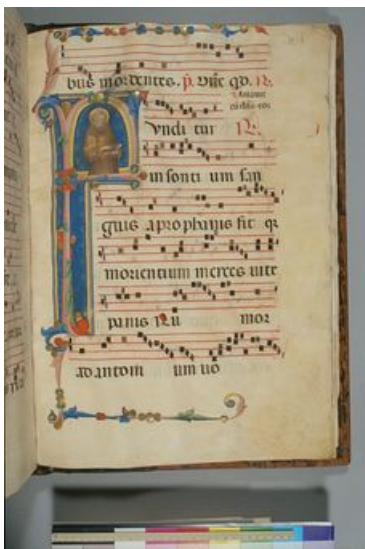 bus mordentes. p. Vite qd. R.
undi tur R.
in sonti um san
guis a prophanis fit qr
morientium merces vite
panis mor
ad antoni um vo